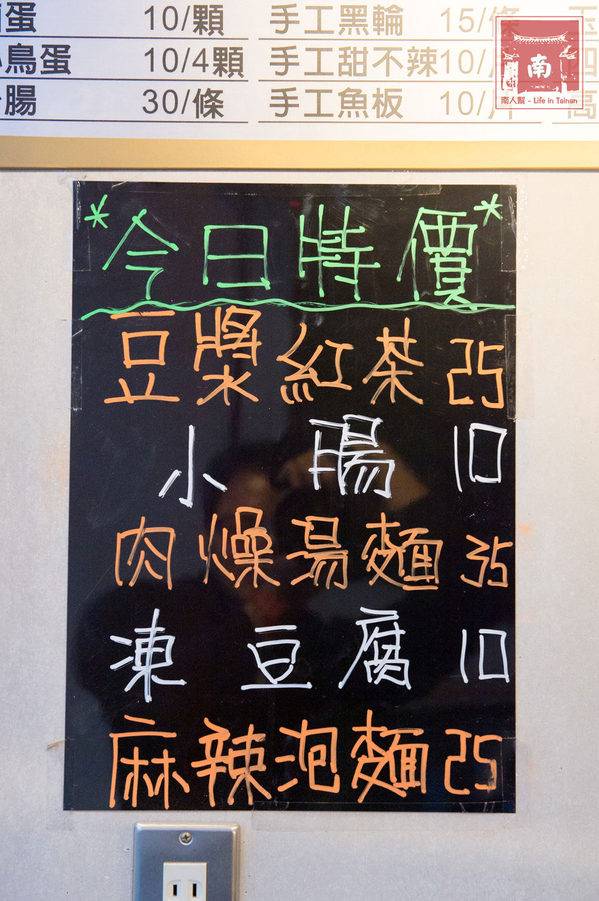 蛋 10/顆 手工黑輪 15/條
鳥蛋 10/4顆 手工甜不辣10/
腸 30/條 手工魚板 10/片 高
南
南人幫 - Life in Tainan
*今日特價*
豆漿紅茶 25
小腸 10
肉燥湯麵 35
凍豆腐 10
麻辣泡麵 25